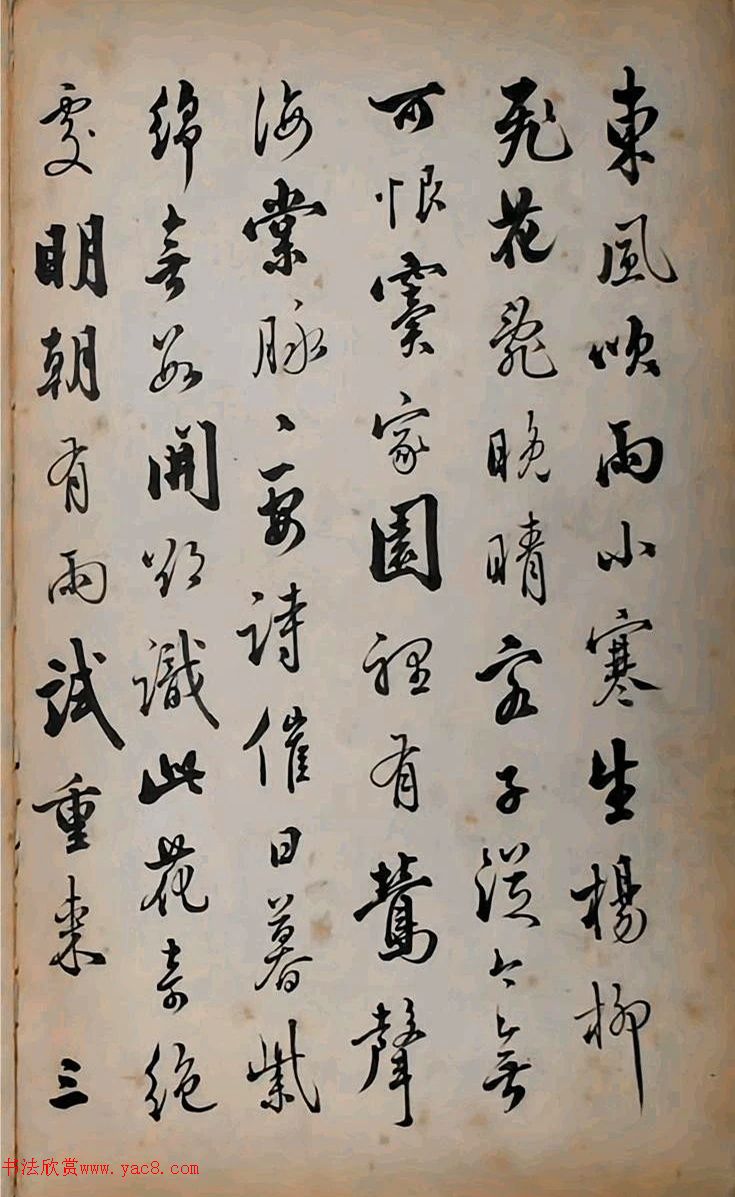 東風吹雨小寒生楊柳
飛花亂晚晴客子從今無
可恨竇家園裡有鶯聲
海棠脉〻要詩催日暮紫
綿無數開欲識此花奇絕
處明朝有雨試重來 三
书法欣赏www.yac8.com